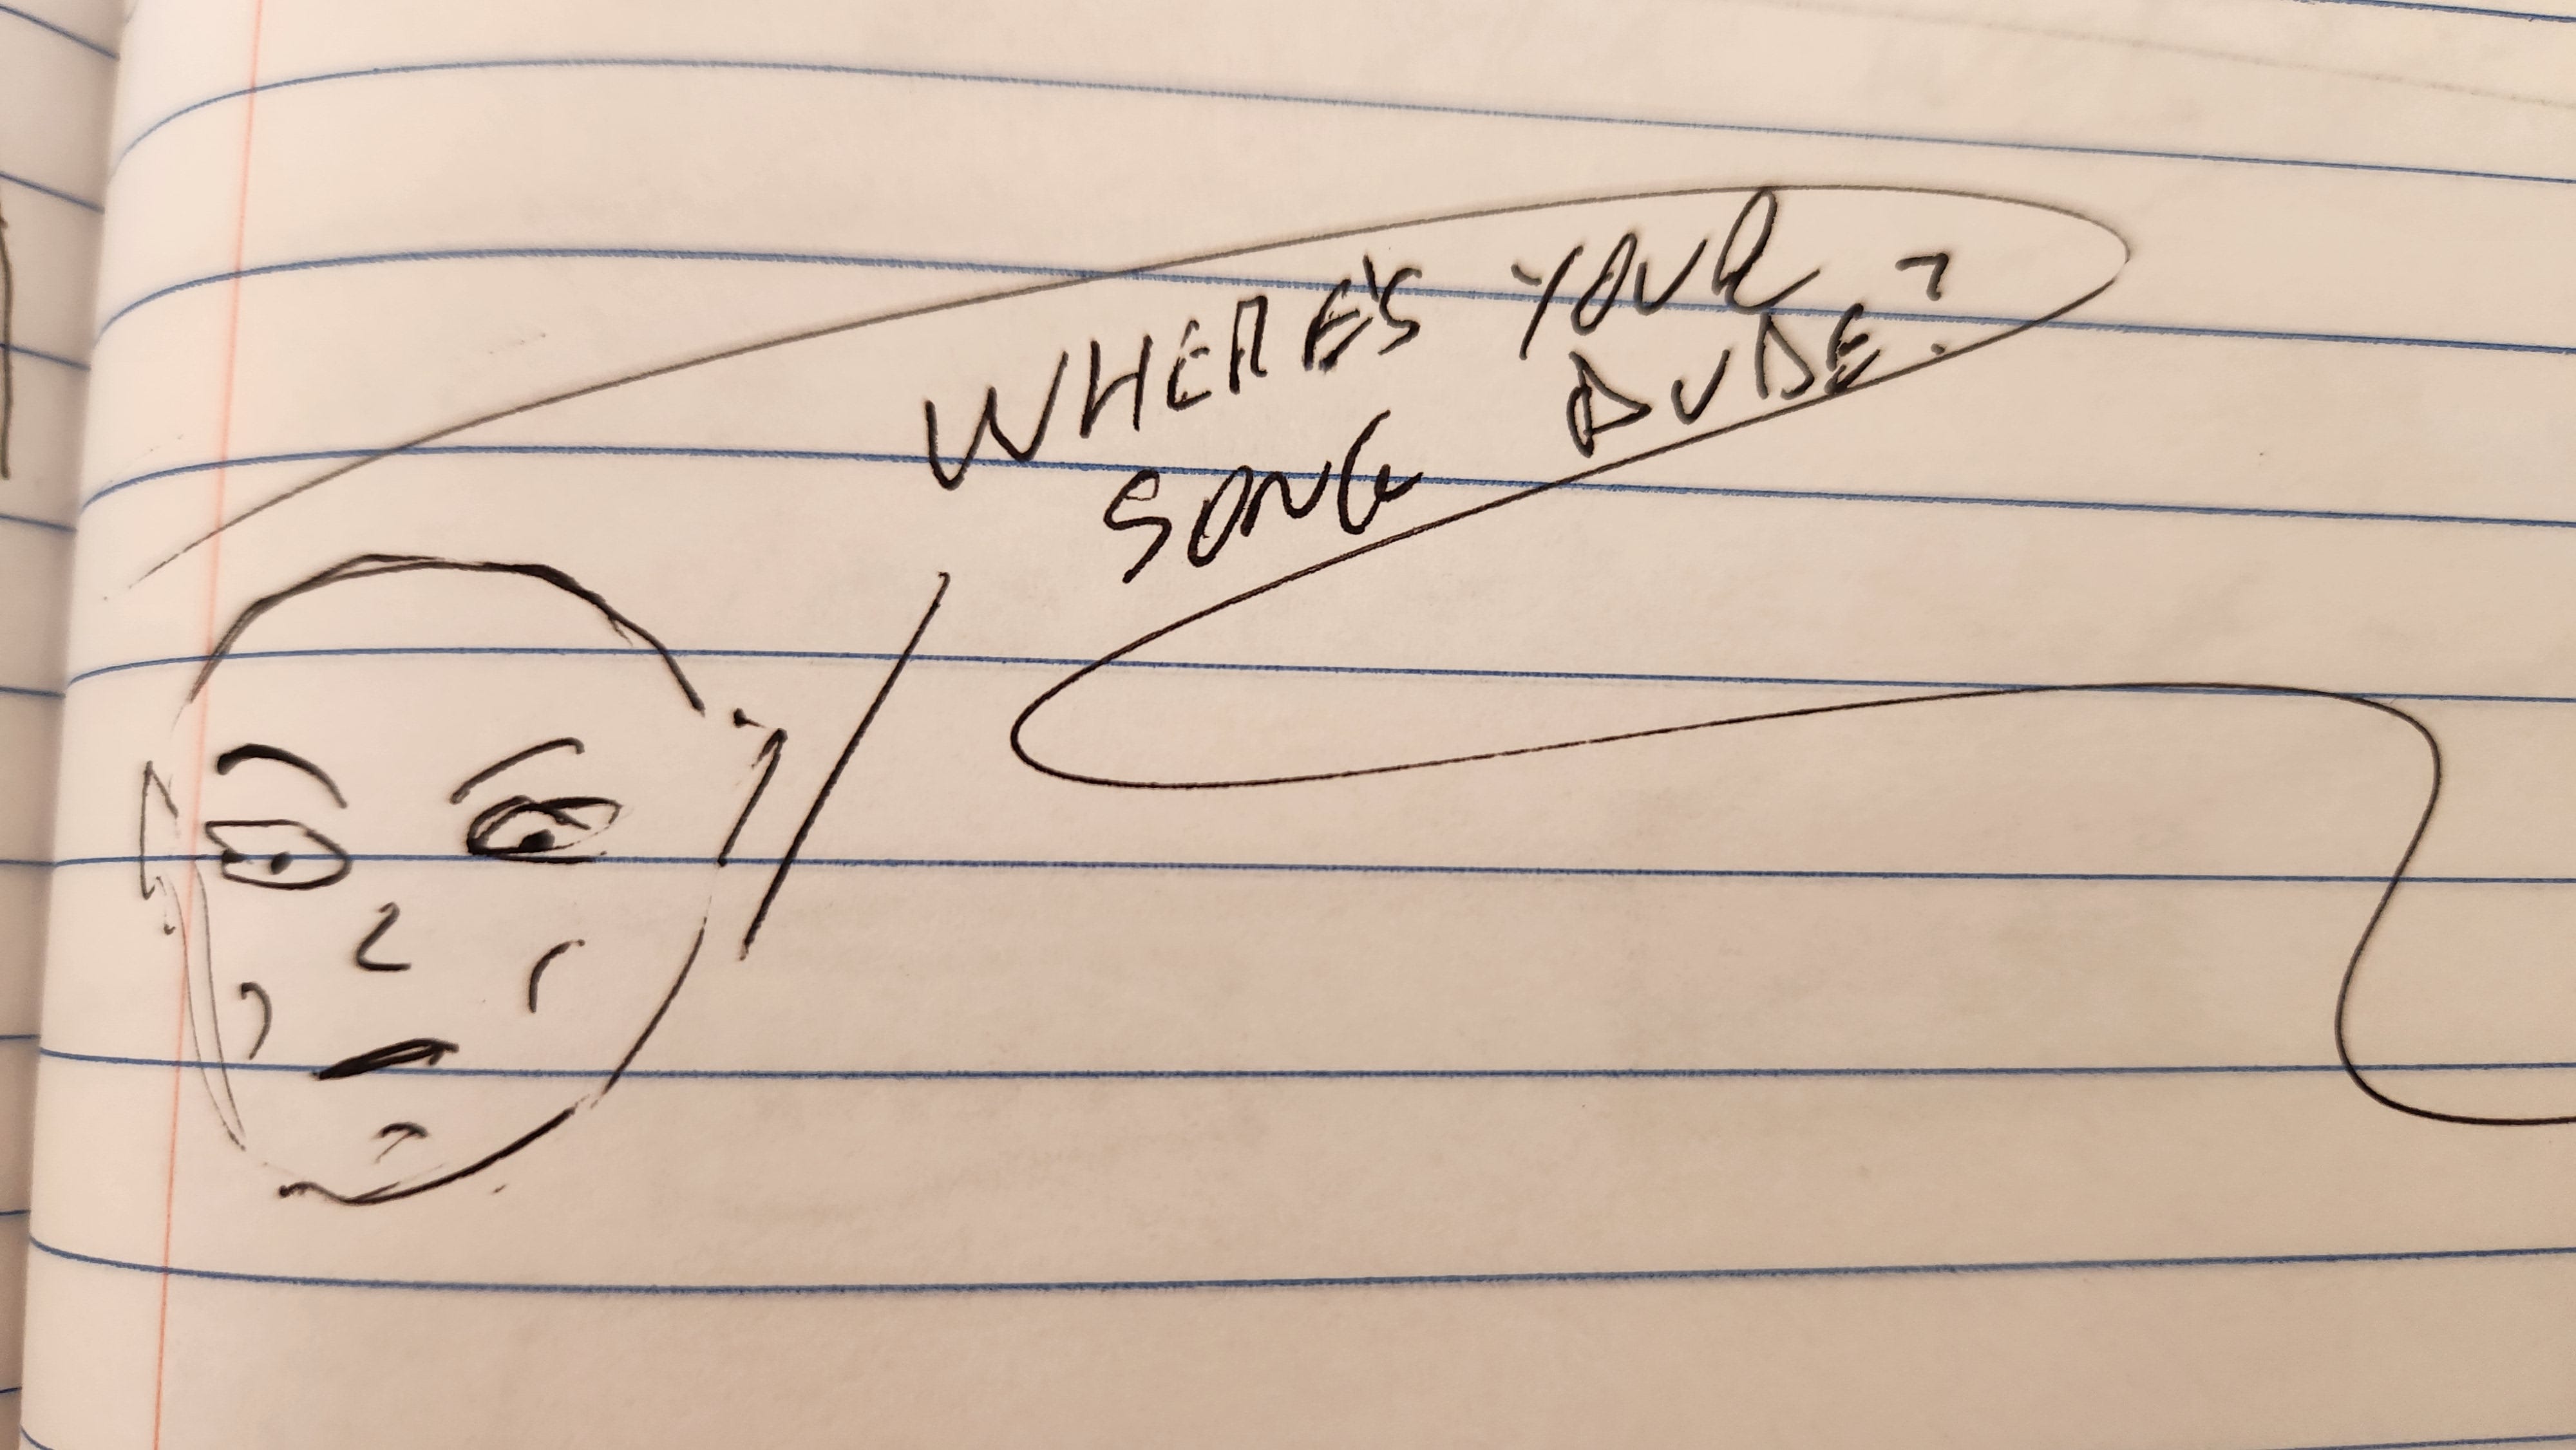 WHERE'S YOUR
SONG DUDE?